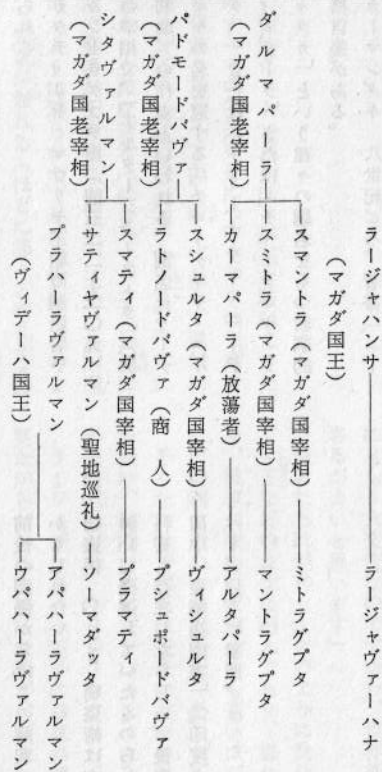 ラージャハンサ――ラージャヴァーハナ
(マガダ国王)
ダルマパーラ
(マガダ国老宰相)
スマントラ(マガダ国宰相)――ミトラグプタ
スミトラ(マガダ国宰相)――マントラグプタ
カーマパーラ(放蕩者)――アルタパーラ
パドモードバヴァ
(マガダ国老宰相)
スシュルタ(マガダ国宰相)――ヴィシュルタ
ラトノードバヴァ(商 人)――プシュポードバヴァ
シタヴァルマン
(マガダ国老宰相)
スマティ(マガダ国宰相)――プラマティ
サティヤヴァルマン(聖地巡礼)――ソーマダッタ
プラハーラヴァルマン
(ヴィデーハ国王)
アパハーラヴァルマン
ウパハーラヴァルマン